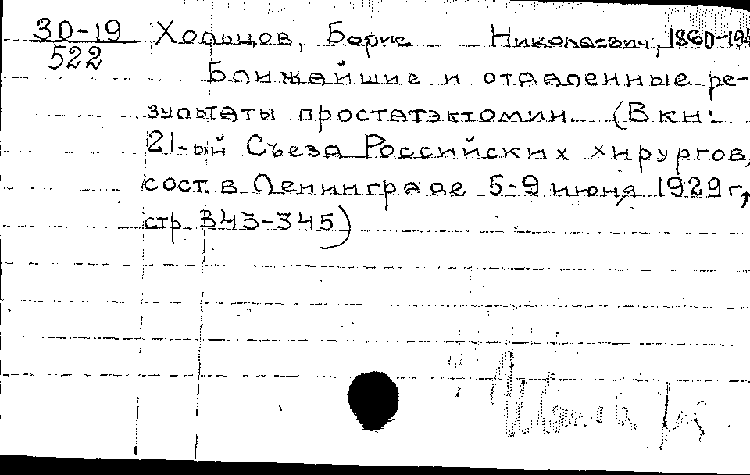 30-19 Хольцов, Борис Николаевич, 1860-194
522
Ближайшие и отдаленные ре-
зультаты простатэктомии. (В кн:
21-ый Съезд Российских хирургов,
сост. в Ленинграде 5-9 июня 1929 г.,
стр. 343-345)